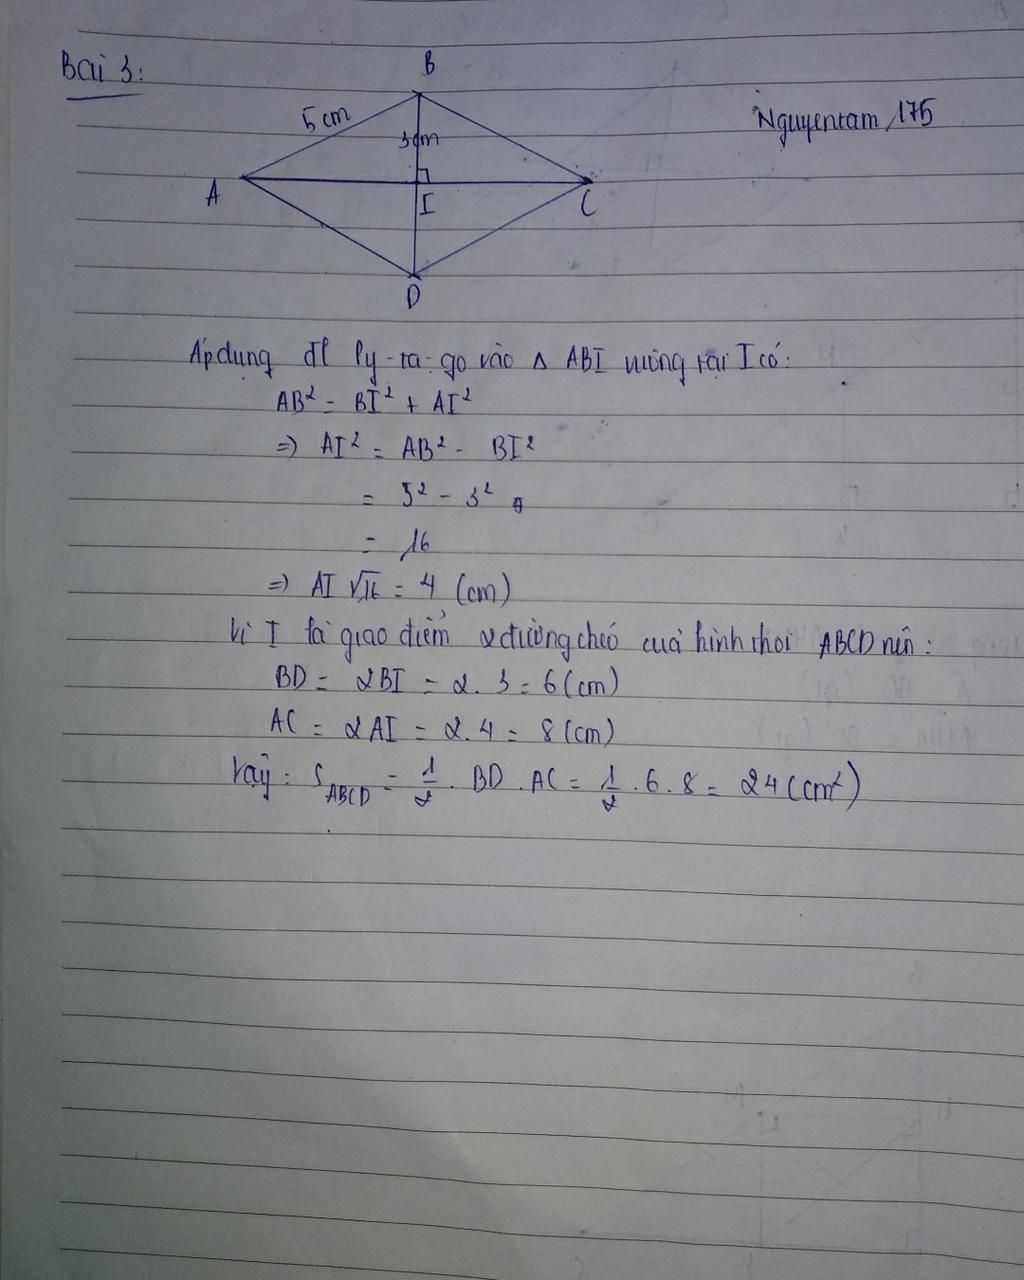 Bài 3:
B
5 cm
3cm
Nguyentam 175
A
I
C
D
Áp dụng đl Py-ta-go vào Δ ABI vuông tại I có:
AB² = BI² + AI²
=> AI² = AB² - BI²
= 5² - 3²
= 16
=> AI √16 = 4 (cm)
Vì I là giao điểm 2 đường chéo của hình thoi ABCD nên:
BD = 2BI = 2. 3 = 6 (cm)
AC = 2AI = 2. 4 = 8 (cm)
Vậy: S_ABCD = 1/2 . BD . AC = 1/2 . 6 . 8 = 24 (cm²)